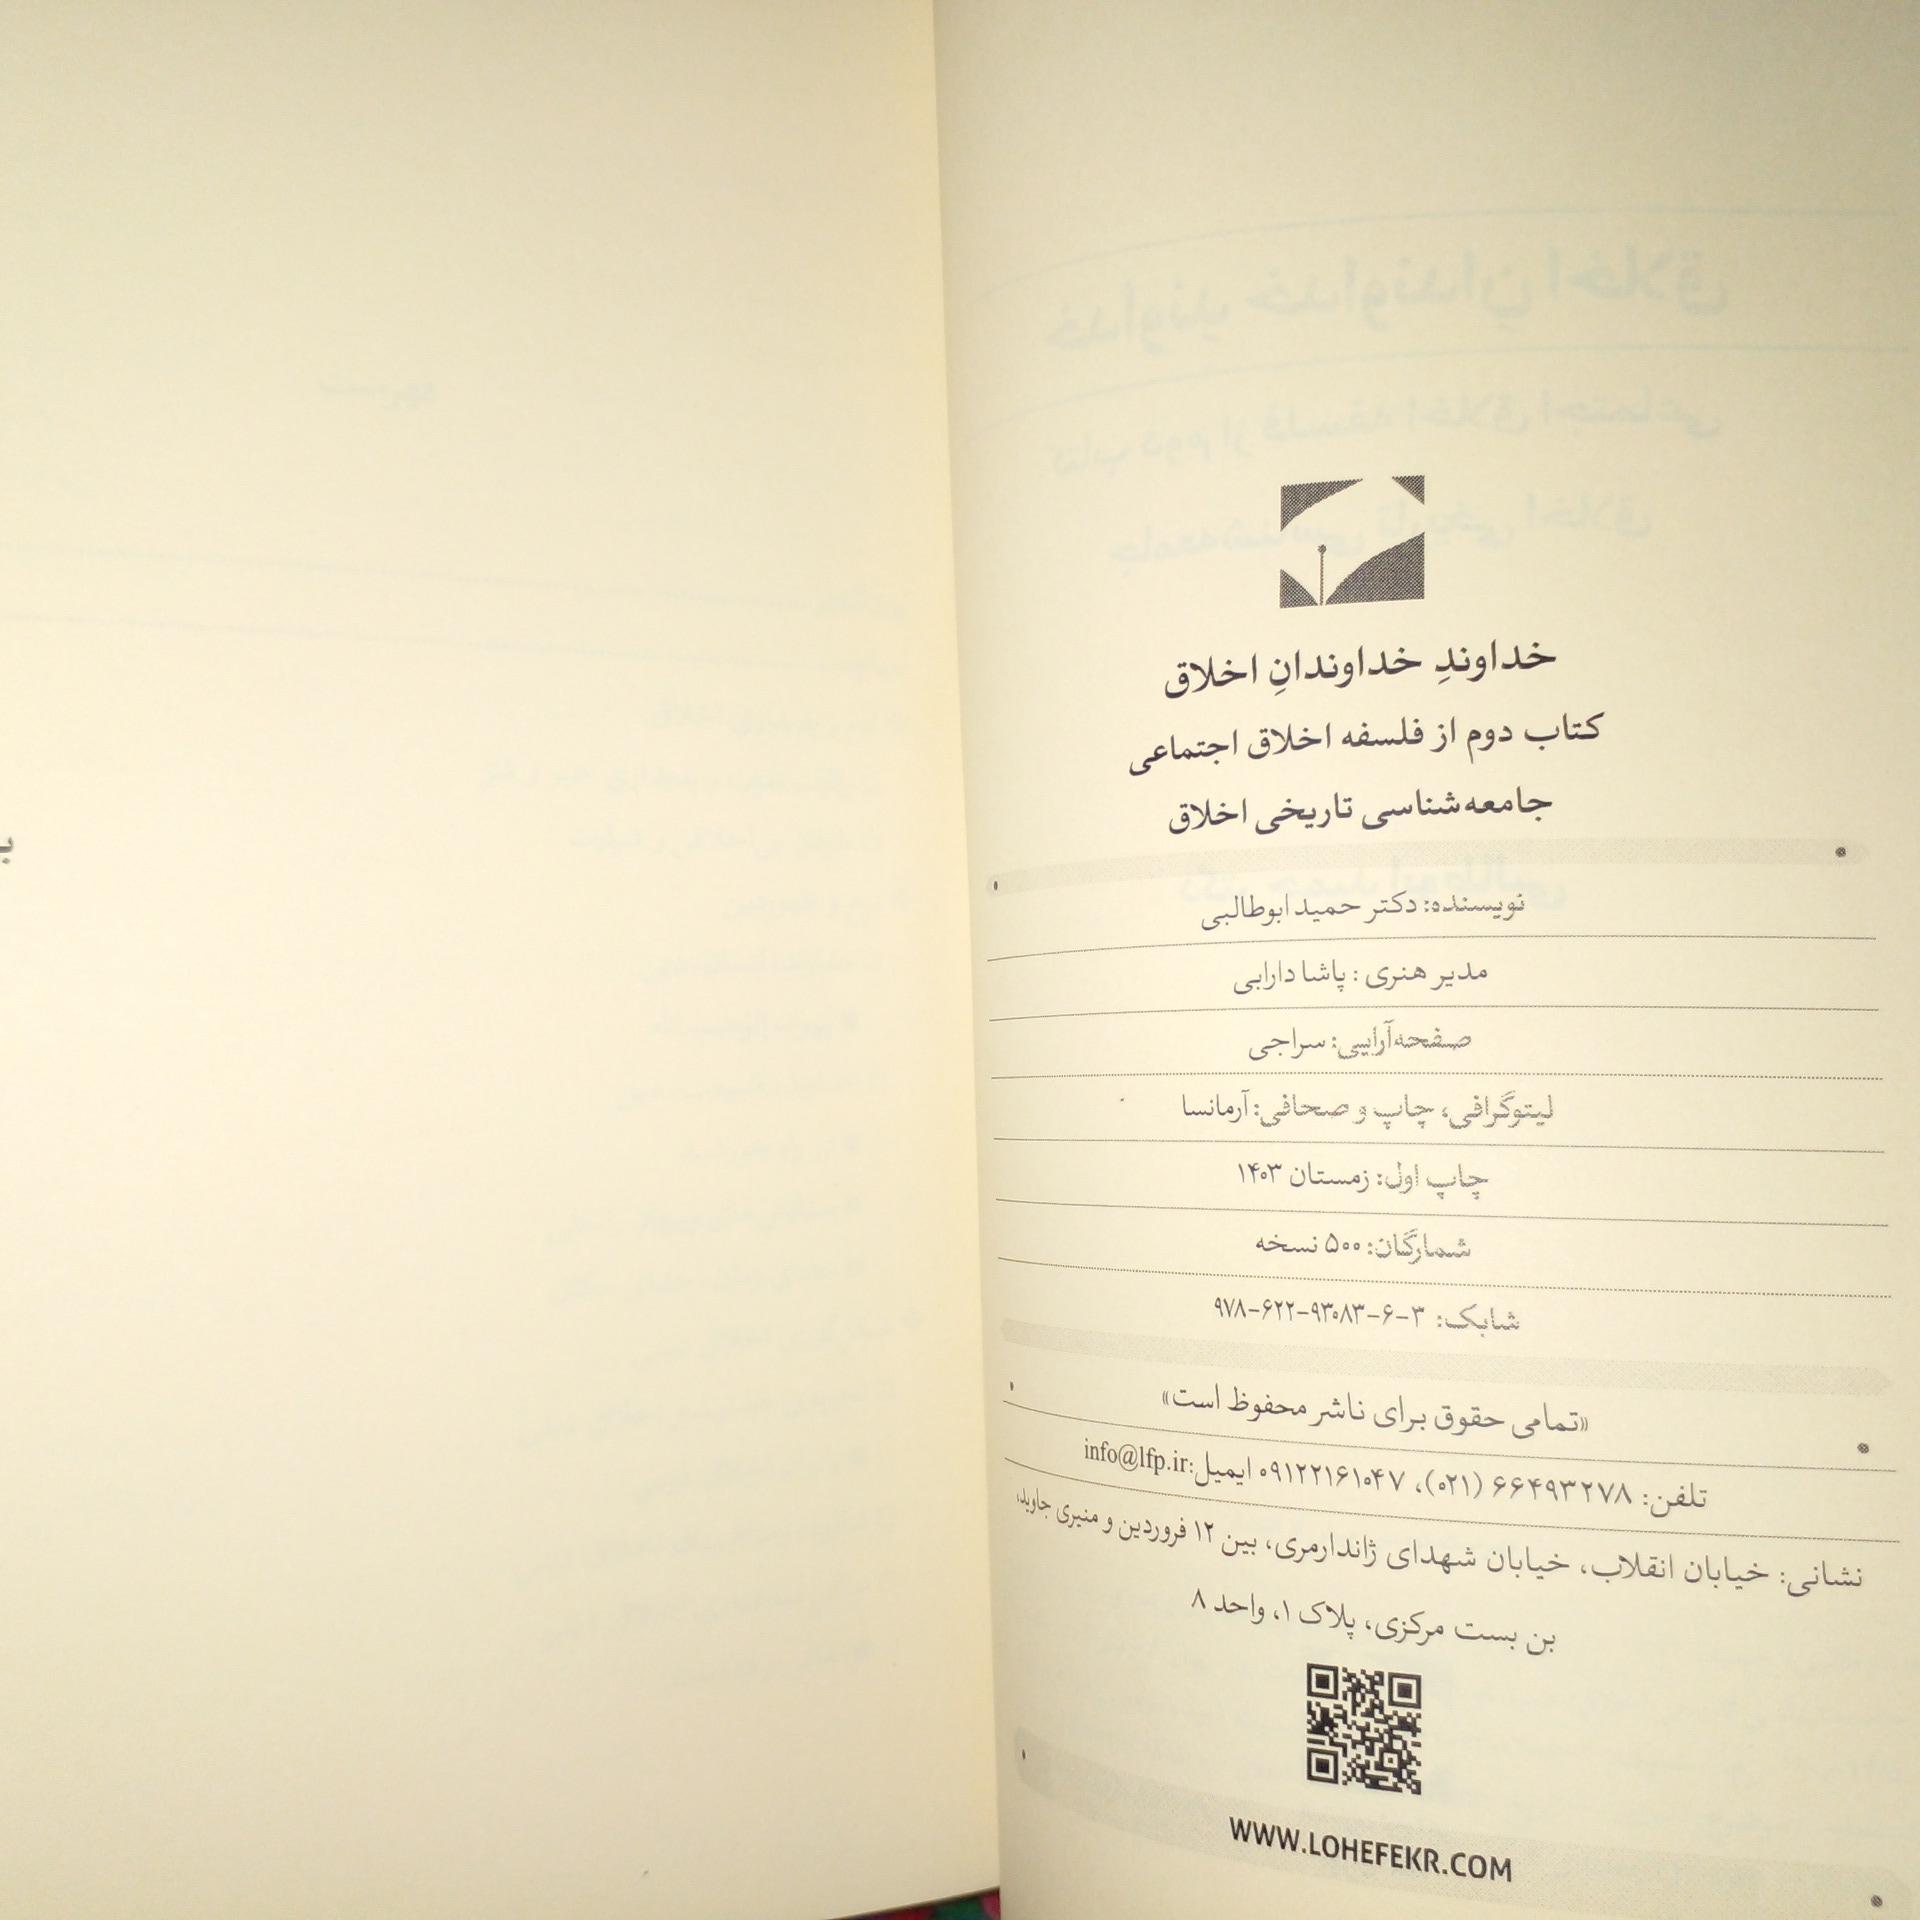 خداوندِ خداوندانِ اخلاق
کتاب دوم از فلسفه اخلاق اجتماعی
جامعه‌شناسی تاریخی اخلاق
نویسنده: دکتر حمید ابوطالبی
مدیر هنری : پاشا دارابی
صفحه‌آرایی: سراجی
لیتوگرافی، چاپ و صحافی: آرمانسا
چاپ اول: زمستان ۱۴۰۳
شمارگان: ۵۰۰ نسخه
شابک: ۳-۶-۹۳۰۸۳-۶۲۲-۹۷۸
«تمامی حقوق برای ناشر محفوظ است»
تلفن: ۶۶۴۹۳۲۷۸ (۰۲۱)، ۰۹۱۲۲۱۶۱۰۴۷ ایمیل:info@lfp.ir
نشانی: خیابان انقلاب، خیابان شهدای ژاندارمری، بین ۱۲ فروردین و منیری جاوید،
بن بست مرکزی، پلاک ۱، واحد ۸
WWW.LOHEFEKR.COM